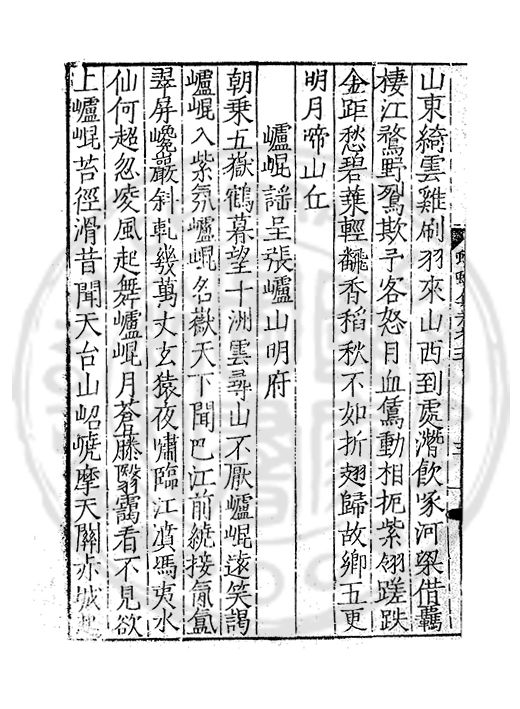 山東綺雲雞刷羽來山西到處潛飲啄河梁借羈
棲江鶩野鴛欺予客怒目血鴈動相扼紫翎蹉跌
金距愁碧葉輕飜香稻秋不如折翅歸故鄉五更
明月啼山丘
嶇崐謡呈張嶇山明府
朝乗五嶽鶴暮望十洲雲尋山不厭嶇崐遠笑謁
嶇崐入紫氛嶇崐名嶽天下聞巴江前繞接氤氲
翠屏巉巖斜軋幾萬丈玄猿夜嘯臨江濆馮夷水
仙何超忽凌風起舞嶇崐月蒼藤翳靄看不見欲
上嶇崐苔徑滑昔聞天台山岧嶢摩天關赤城